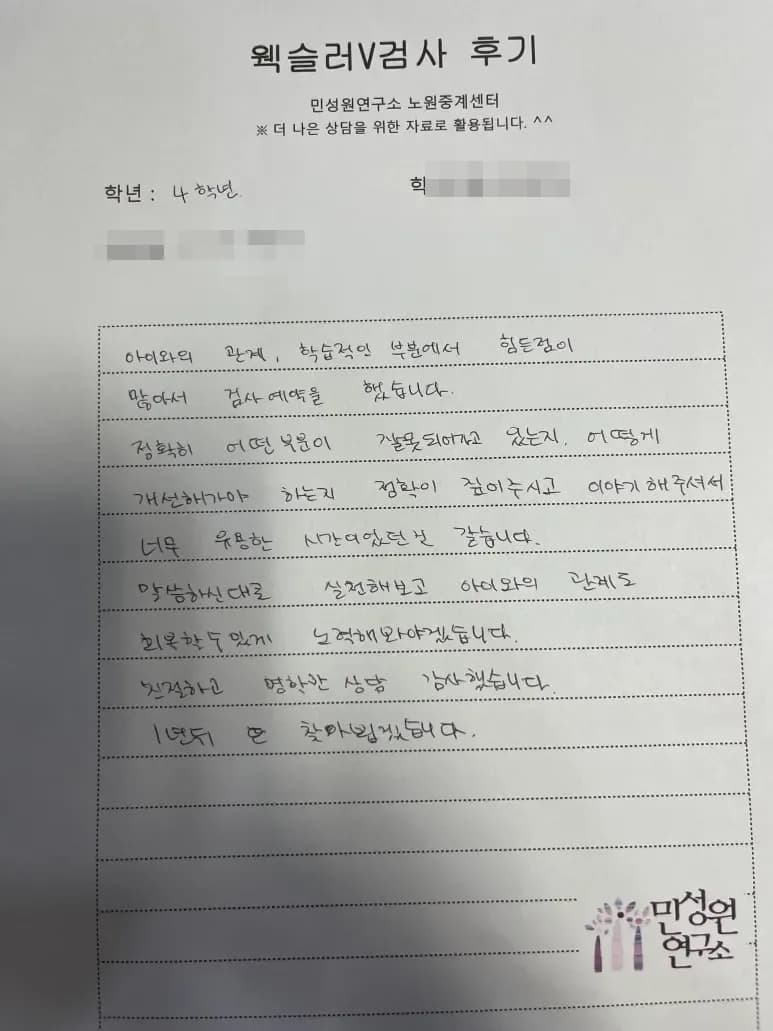 웩슬러V검사 후기
민성원연구소 노원중계센터
※ 더 나은 상담을 위한 자료로 활용됩니다. ^^
학년 : 4학년.
학
아이와의 관계, 학습적인 부분에서 힘든점이
많아서 검사예약을 했습니다.
정확히 어떤부분이 잘못되어가고 있는지, 어떻게
개선해가야 하는지 정확이 짚어주시고 이야기해주셔서
너무 유용한 시간이었던것 같습니다.
말씀하신대로 실천해보고 아이와의 관계도
회복할수있게 노력해봐야겠습니다.
친절하고 명확한 상담 감사했습니다.
1년뒤 또 찾아뵙겠습니다.
민성원
연구소